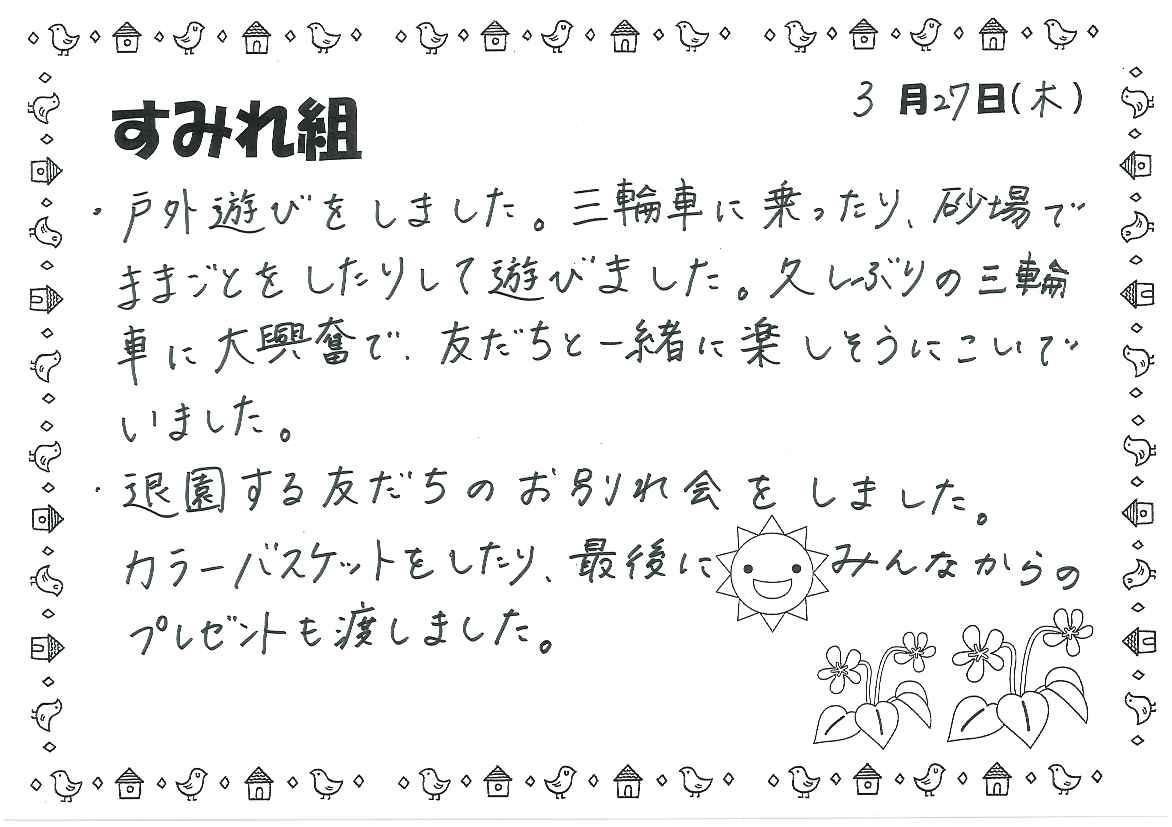 すみれ組
3月27日(木)
・戸外遊びをしました。三輪車に乗ったり、砂場で
ままごとをしたりして遊びました。久しぶりの三輪
車に大興奮で、友だちと一緒に楽しそうにこいで
いました。
・退園する友だちのお別れ会をしました。
カラーバスケットをしたり、最後にみんなからの
プレゼントも渡しました。